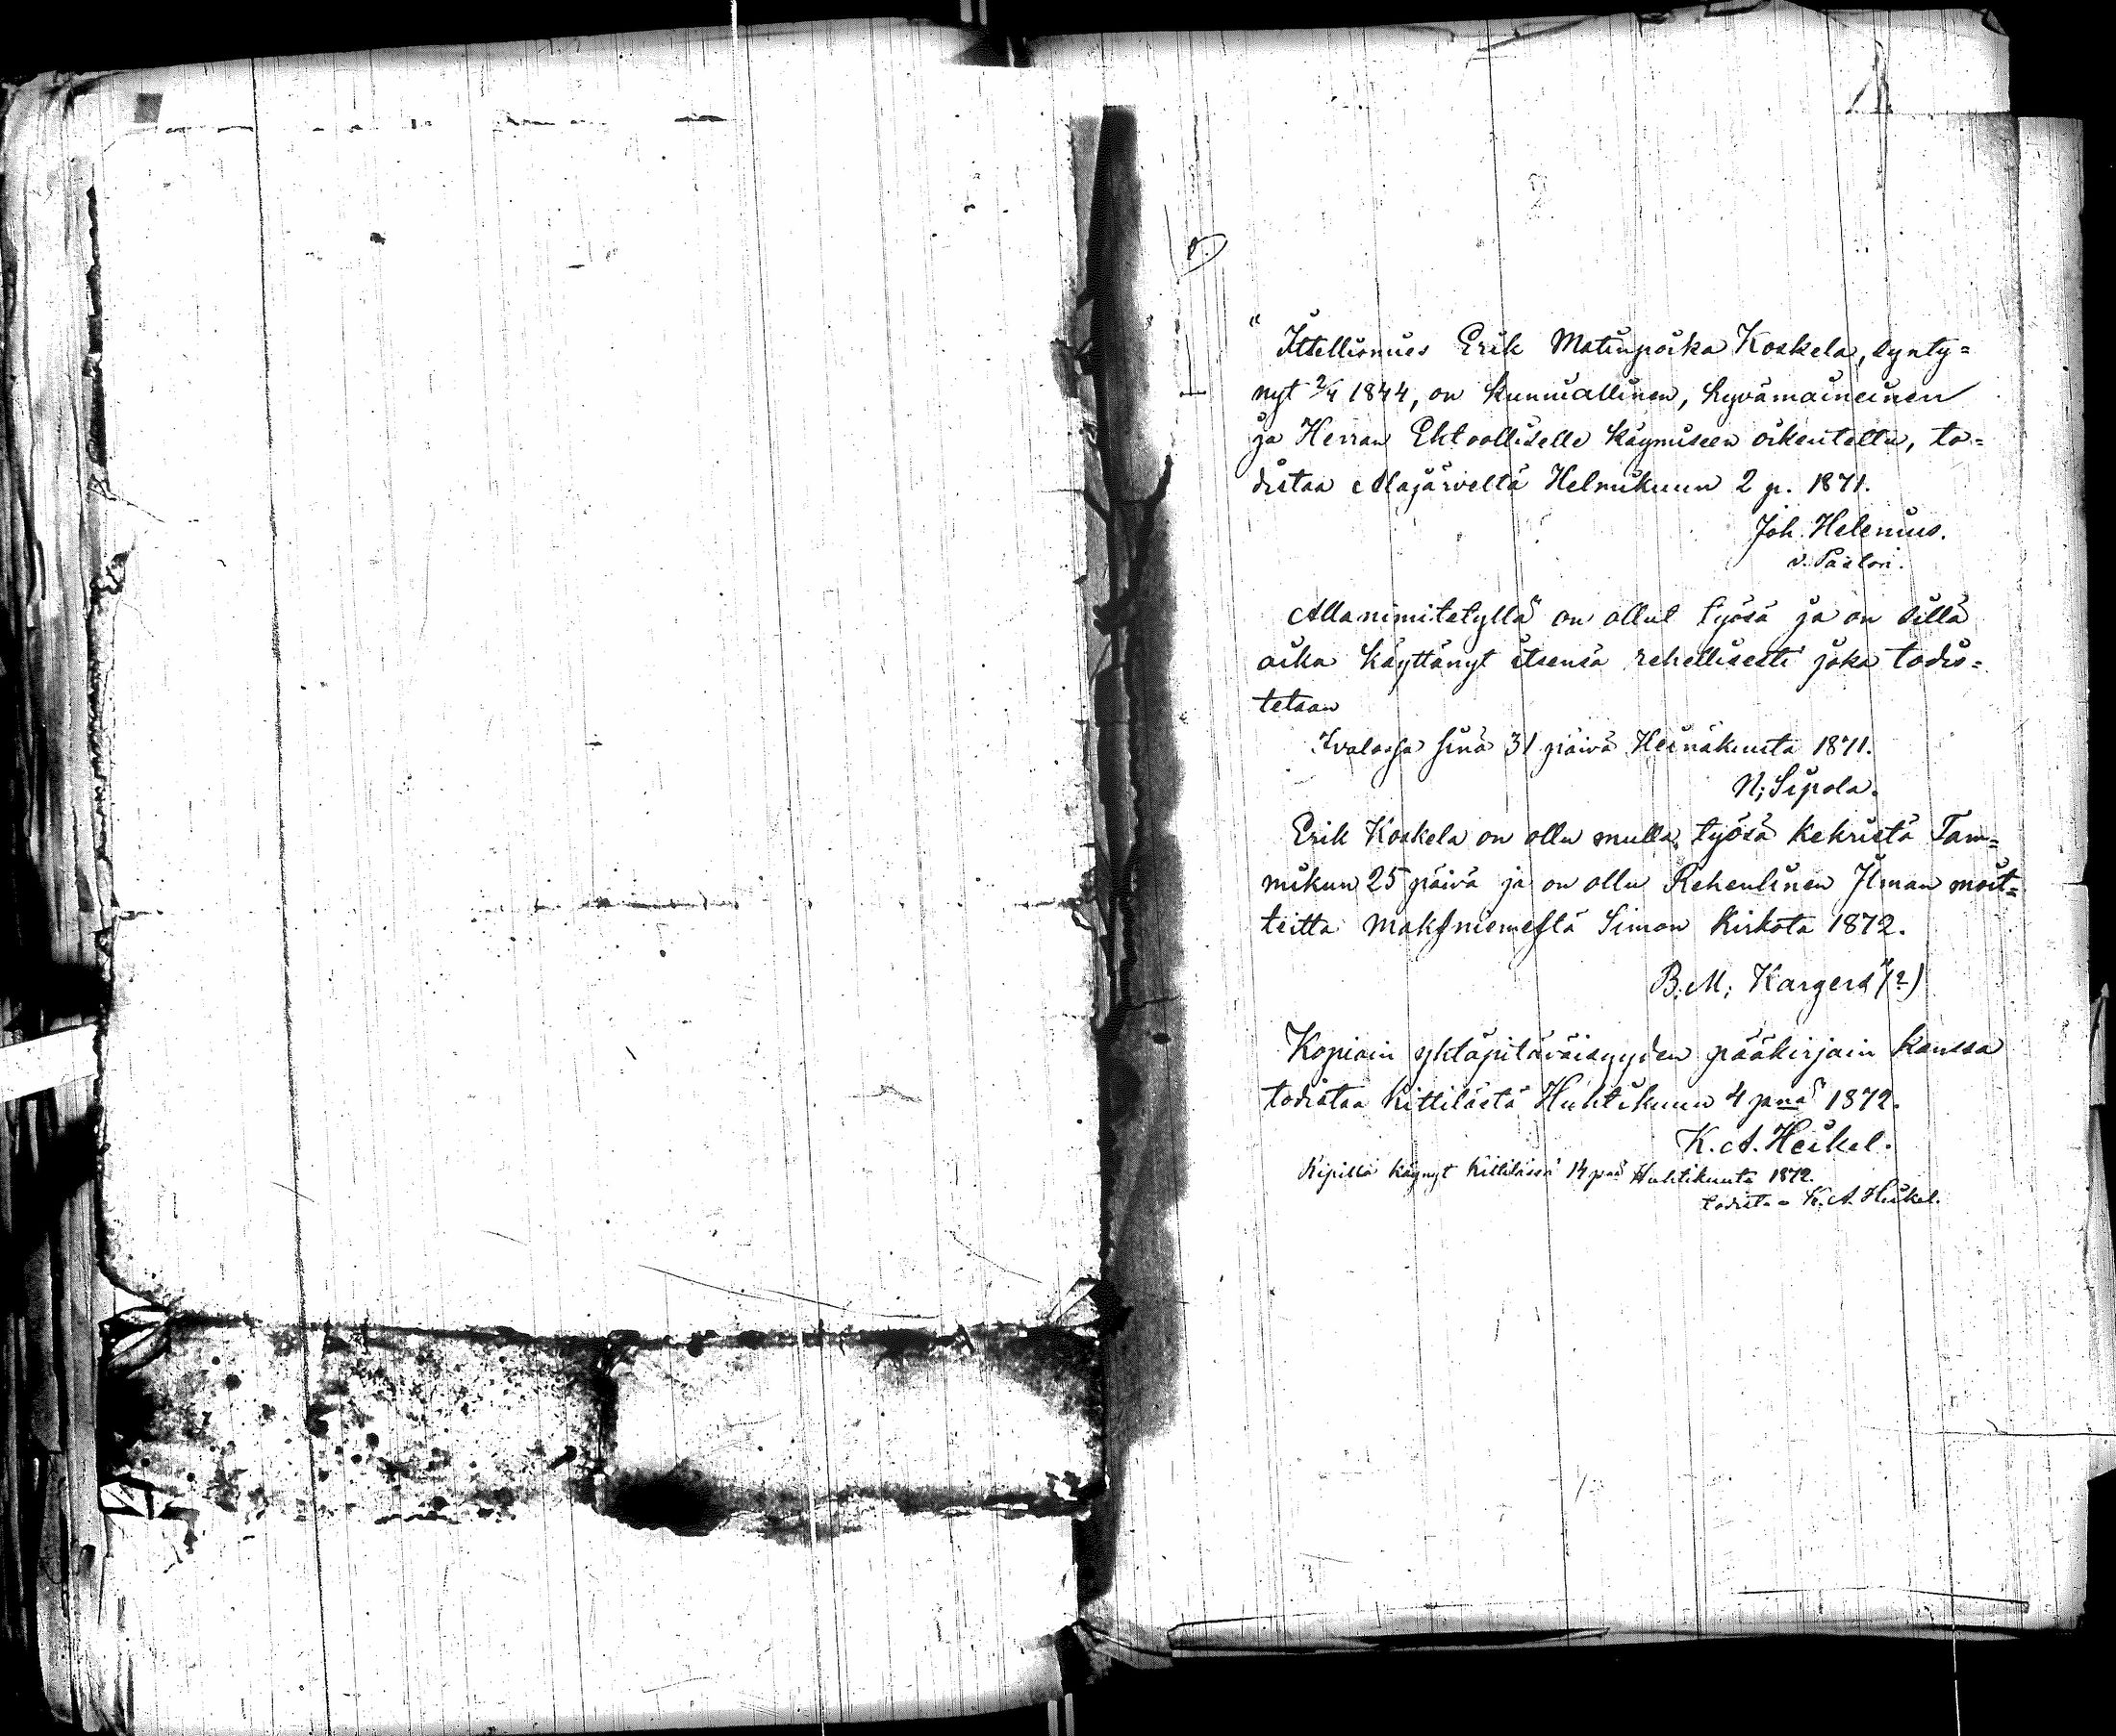 "Ittellismies Erik Matinpoika Koskela, synty=
nyt 2/4 1844, on kunniallinen, hyvämaineinen
ja Herran Ehtoolliselle käymiseen oikeutettu, to=
distaa Alajärveltä Helmikuun 2 p. 1871.
Joh. Helenius.
v. Pastori.
Allanimitetyllä on ollut työsä ja on sillä
aika käyttänyt itsensä rehellisesti joka todis=
tetaan
Ivalossa sinä 31 päivä Heinäkuuta 1871.
N; Sipola.
Erik Koskela on ollu mulla työsä kekristä Tam=
mikun 25 päivä ja on ollu Rehenlinen Ilman moit=
teitta Maksniemestä Simon kirkota 1872.
B; M; Kargerä"(?)
Kopioin yktäpitäväisyyden pääkirjain kanssa
todistaa Kittilästä Huhtikuun 4 pnä 1872.
K. A. Heikel.
Ripillä käynyt Kittilässä 14 pnä Huhtikuuta 1872.
todista - K. A. Heikel.